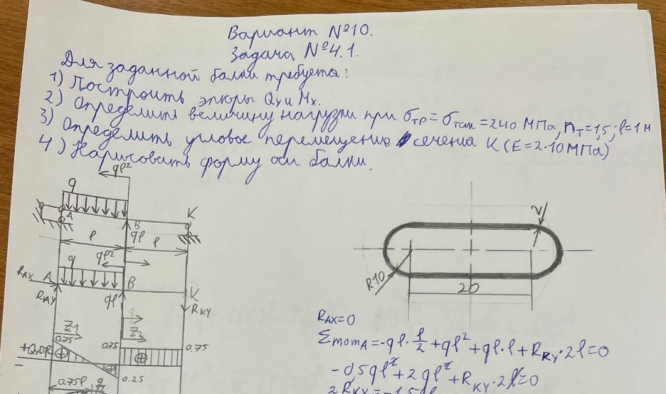 Вариант №10.
Задача №4.1.
Для заданной балки требуется:
1) Построить эпюры Qy и Mx.
2) Определить величину нагрузки при σтр=σтсж=240 МПа, nт=1,5; l=1 м
3) Определить угловое перемещение сечения К (E=2·10МПа)
4) Нарисовать форму оси балки.
ql²
q
A
B
K
l
ql
l
q
ql²
RAX
A
B
K
RAY
ql
RKY
Z1
Z2
0.75
0.75
0.75
+Qyql
0.25
0.75l
2
R10
20
RAX=0
ΣmomA=-ql·l/2+ql²+ql·l+RKY·2l=0
-0,5ql²+2ql²+RKY·2l=0
2RKY=-1,5ql